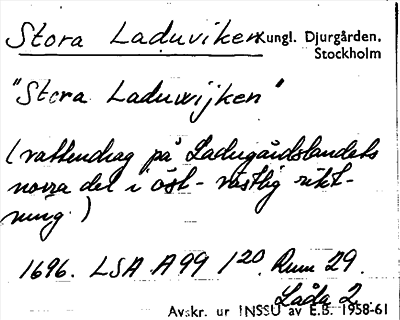 Stora Laduviken Kungl. Djurgården,
Stockholm
"Stora Laduwijken"
(vattendrag på Ladugårdslandets
norra del i öst-västlig rikt-
ning.)
1696. LSA A99 1²⁰. Rum 29.
Låda 2.
Avskr. ur INSSU av E.B. 1958-61